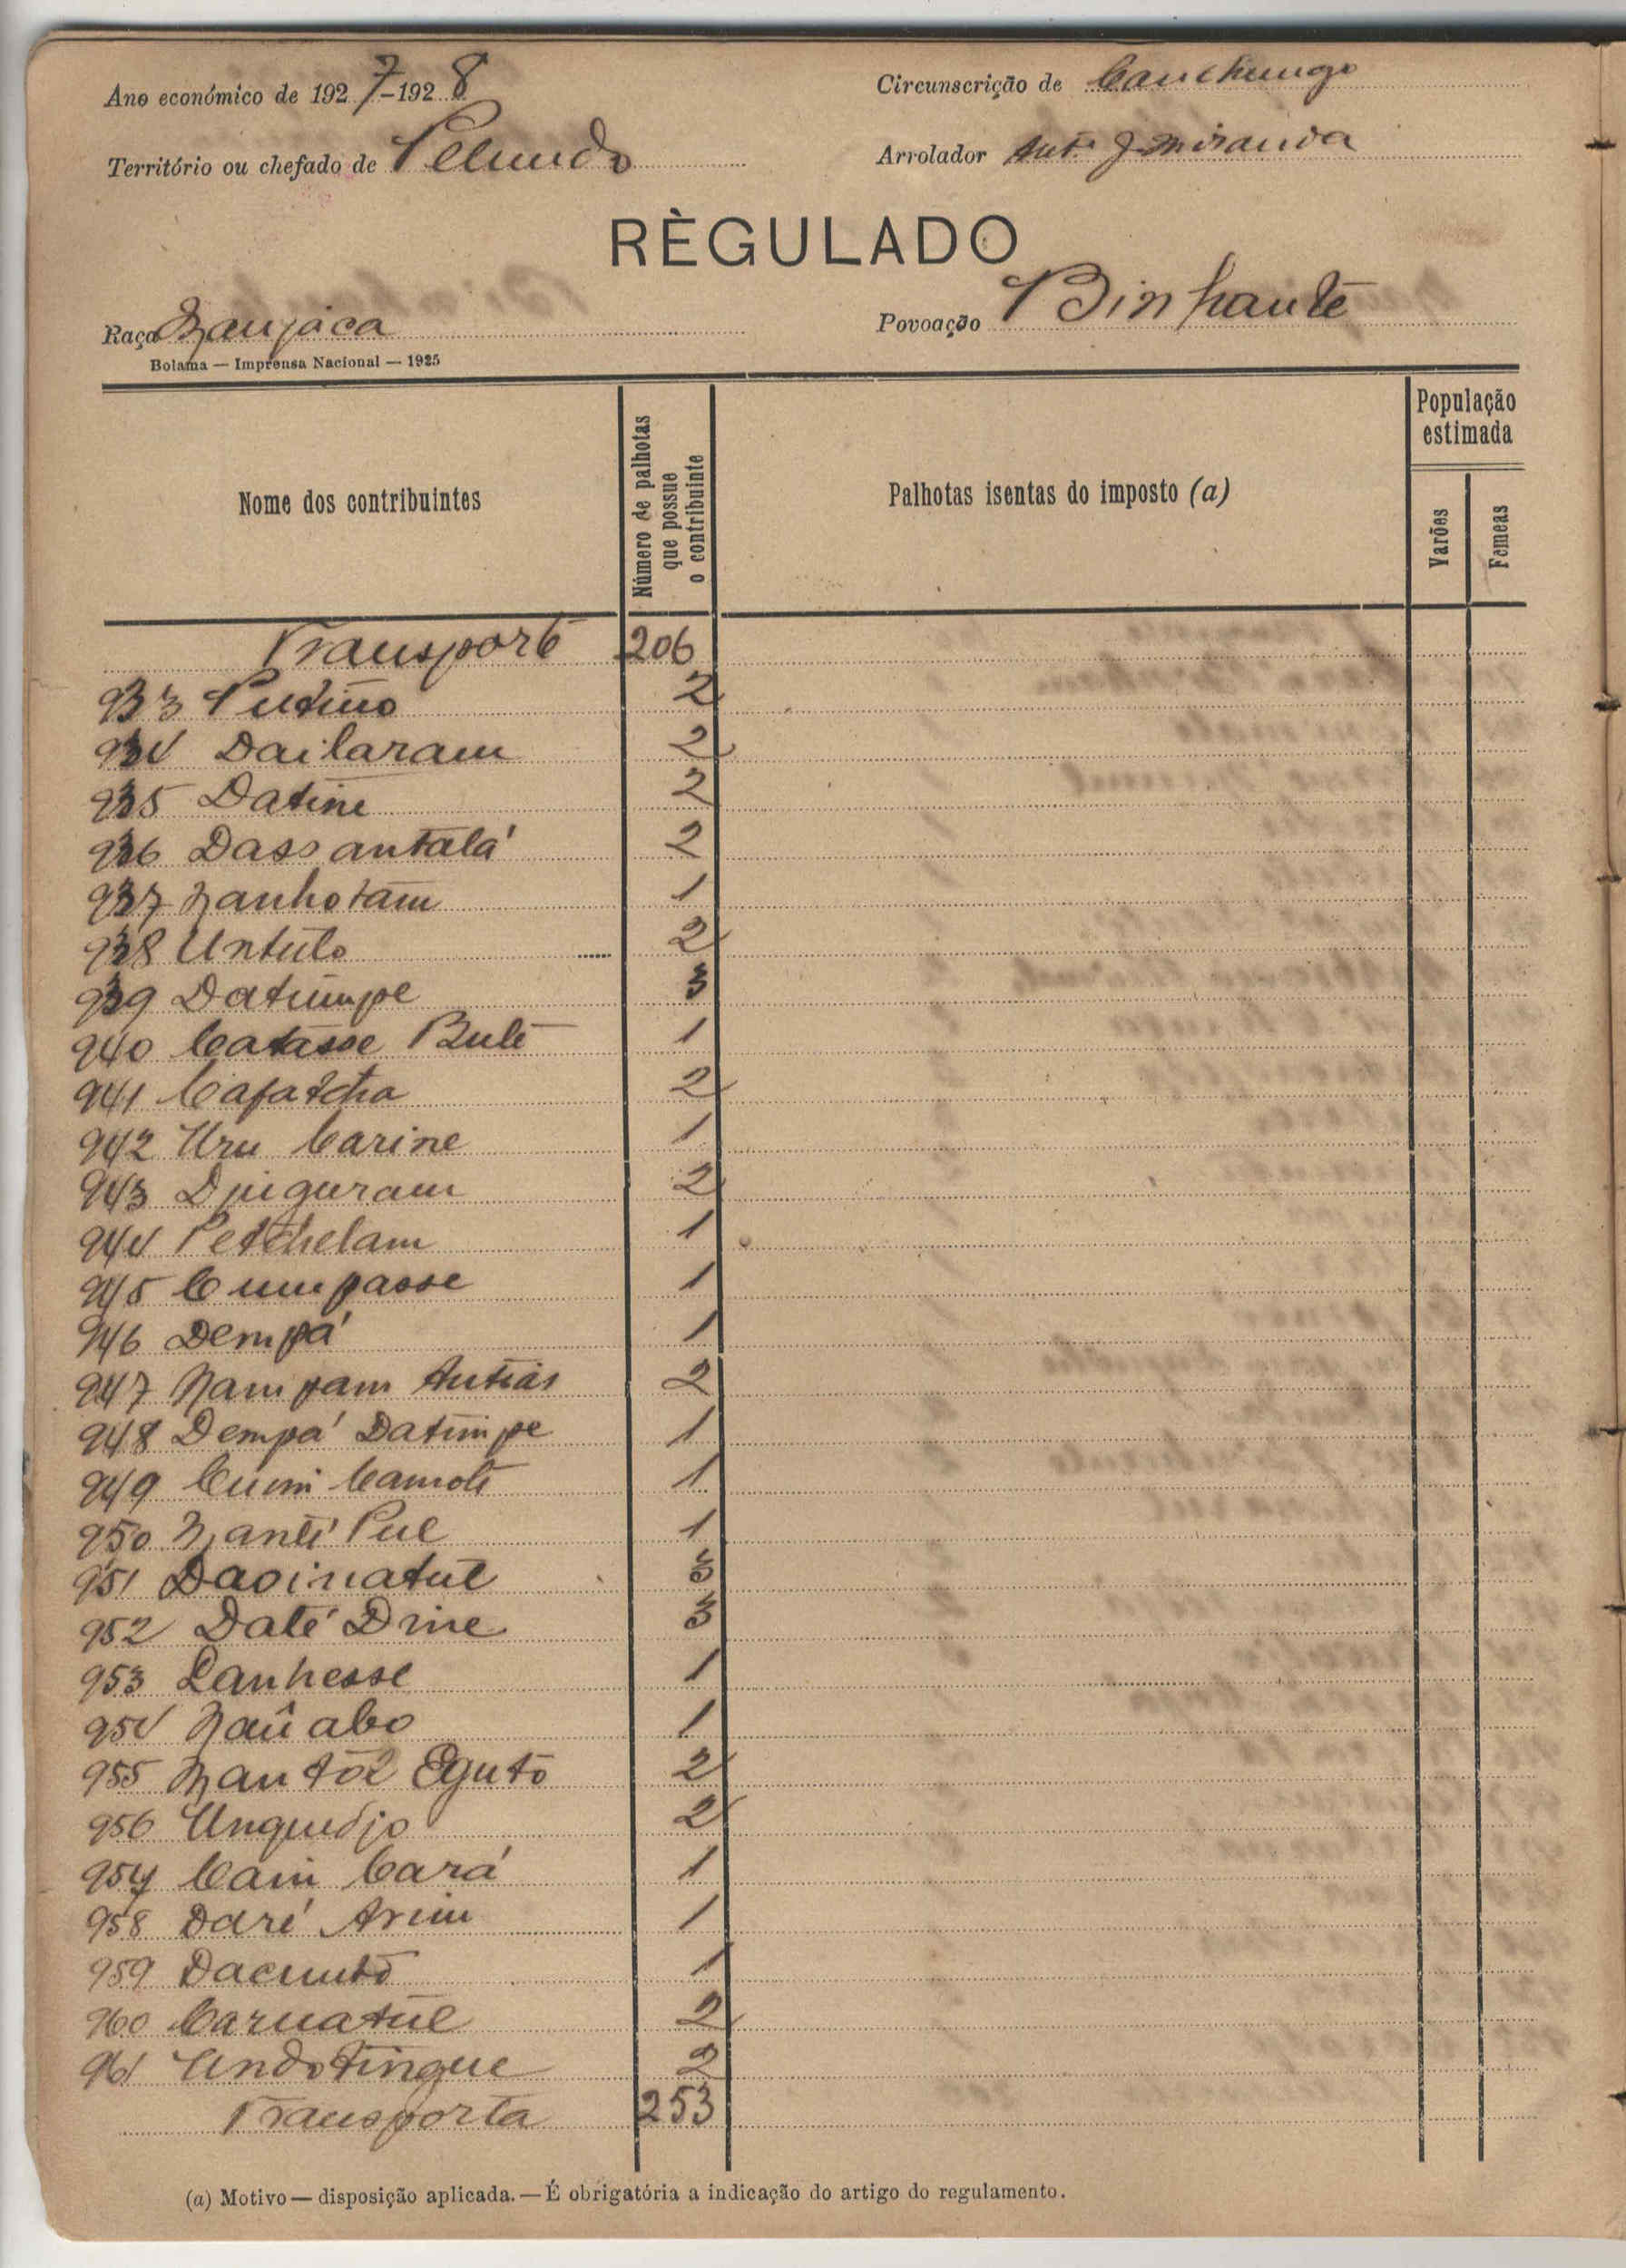 Ano económico de 1927-1928
Circunscrição de Canchungo
Território ou chefado de Pelundo
Arrolador Antº J. Miranda
RÈGULADO
Raça Manjaca
Povoação Binhante
Bolama — Imprensa Nacional — 1925
Nome dos contribuintes
Número de palhotas que possue o contribuinte
Palhotas isentas do imposto (a)
População estimada
Varões
Femeas
Transporte 206
933 Putino 2
934 Dailaram 2
935 Datine 2
936 Dassantalá 2
937 Nanhotam 1
938 Untulo 2
939 Datumpe 3
940 Catasse Bule 1
941 Cafatcha 2
942 Uru Carine 1
943 Djuguram 2
944 Petchelam 1
945 Cumpasse 1
946 Dempá 1
947 Nampam Antias 2
948 Dempá Datimpe 1
949 Cumi Camoti 1
950 Nanti Pul 1
951 Daoinatul 3
952 Daté Drine 3
953 Lanhesse 1
954 Naûabo 1
955 Nantoz Eguto 2
956 Unguedjo 2
957 Cain Cará 1
958 Daré Arim 1
959 Dacunto 1
960 Caruatul 2
961 Undotingue 2
Transporta 253
(a) Motivo — disposição aplicada. — É obrigatória a indicação do artigo do regulamento.